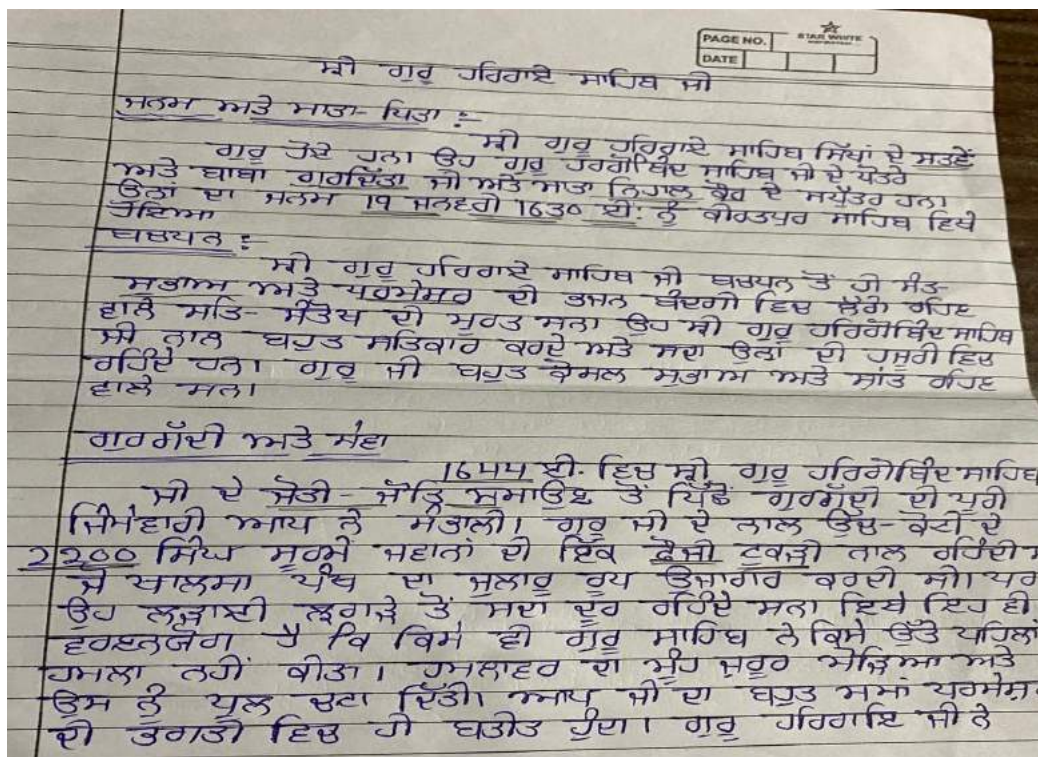 PAGE NO.
DATE
STAR WHITE
ਸ਼੍ਰੀ ਗੁਰੂ ਹਰਿਰਾਏ ਸਾਹਿਬ ਜੀ
ਜਨਮ ਅਤੇ ਮਾਤਾ-ਪਿਤਾ :-
ਸ਼੍ਰੀ ਗੁਰੂ ਹਰਿਰਾਏ ਸਾਹਿਬ ਸਿੱਖਾਂ ਦੇ ਸਤਵੇਂ
ਗੁਰੂ ਹੋਏ ਹਨ। ਉਹ ਗੁਰੂ ਹਰਗੋਬਿੰਦ ਸਾਹਿਬ ਜੀ ਦੇ ਪੋਤਰੇ
ਅਤੇ ਬਾਬਾ ਗੁਰਦਿੱਤਾ ਜੀ ਅਤੇ ਮਾਤਾ ਨਿਹਾਲ ਕੌਰ ਦੇ ਸਪੁੱਤਰ ਹਨ।
ਉਨਾਂ ਦਾ ਜਨਮ 19 ਜਨਵਰੀ 1630 ਈ: ਨੂੰ ਕੀਰਤਪੁਰ ਸਾਹਿਬ ਵਿਖੇ
ਹੋਇਆ
ਬਚਪਨ :-
ਸ਼੍ਰੀ ਗੁਰੂ ਹਰਿਰਾਏ ਸਾਹਿਬ ਜੀ ਬਚਪਨ ਤੋਂ ਹੀ ਸੰਤ-
ਸੁਭਾਅ ਅਤੇ ਪਰਮੇਸਰ ਦੀ ਭਜਨ ਬੰਦਗੀ ਵਿਚ ਲੱਗੇ ਰਹਿਣ
ਵਾਲੇ ਸਤਿ-ਸੰਤੋਖ ਦੀ ਮੂਰਤ ਸਨ। ਉਹ ਸ਼੍ਰੀ ਗੁਰੂ ਹਰਿਗੋਬਿੰਦ ਸਾਹਿਬ
ਜੀ ਨਾਲ ਬਹੁਤ ਸਤਿਕਾਰ ਕਰਦੇ ਅਤੇ ਸਦਾ ਉਨਾਂ ਦੀ ਹਜੂਰੀ ਵਿਚ
ਰਹਿੰਦੇ ਹਨ। ਗੁਰੂ ਜੀ ਬਹੁਤ ਕੋਮਲ ਸੁਭਾਅ ਅਤੇ ਸ਼ਾਂਤ ਰਹਿਣ
ਵਾਲੇ ਸਨ।
ਗੁਰਗੱਦੀ ਅਤੇ ਸੇਵਾ
1644 ਈ. ਵਿਚ ਸ਼੍ਰੀ ਗੁਰੂ ਹਰਿਗੋਬਿੰਦ ਸਾਹਿਬ
ਜੀ ਦੇ ਜੋਤੀ-ਜੋਤਿ ਸਮਾਉਣ ਤੋਂ ਪਿੱਛੋਂ ਗੁਰਗੱਦੀ ਦੀ ਪੂਰੀ
ਜਿੰਮੇਵਾਰੀ ਆਪ ਨੇ ਸੰਭਾਲੀ। ਗੁਰੂ ਜੀ ਦੇ ਨਾਲ ਉੱਚ-ਕੋਟੀ ਦੇ
2200 ਸਿੰਘ ਸੂਰਮੇ ਜਵਾਨਾਂ ਦੀ ਇਕ ਫੌਜੀ ਟੁਕੜੀ ਨਾਲ ਰਹਿੰਦੀ
ਜੋ ਖਾਲਸਾ ਪੰਥ ਦਾ ਜੁਲਾਰੂ ਰੂਪ ਉਜਾਗਰ ਕਰਦੀ ਸੀ। ਪਰ
ਉਹ ਲੜਾਈ ਝਗੜੇ ਤੋਂ ਸਦਾ ਦੂਰ ਰਹਿੰਦੇ ਸਨ। ਇਥੇ ਇਹ ਵੀ
ਵਰਣਨਯੋਗ ਹੈ ਕਿ ਕਿਸੇ ਵੀ ਗੁਰੂ ਸਾਹਿਬ ਨੇ ਕਿਸੇ ਉੱਤੇ ਪਹਿਲਾਂ
ਹਮਲਾ ਨਹੀਂ ਕੀਤਾ। ਹਮਲਾਵਰ ਦਾ ਮੂੰਹ ਜ਼ਰੂਰ ਮੋੜਿਆ ਅਤੇ
ਉਸ ਨੂੰ ਧੂਲ ਚਟਾ ਦਿੱਤੀ। ਆਪ ਜੀ ਦਾ ਬਹੁਤ ਸਮਾਂ ਪਰਮੇਸ਼
ਦੀ ਭਗਤੀ ਵਿਚ ਹੀ ਬਤੀਤ ਹੁੰਦਾ। ਗੁਰੂ ਹਰਿਰਾਇ ਜੀ ਨੇ